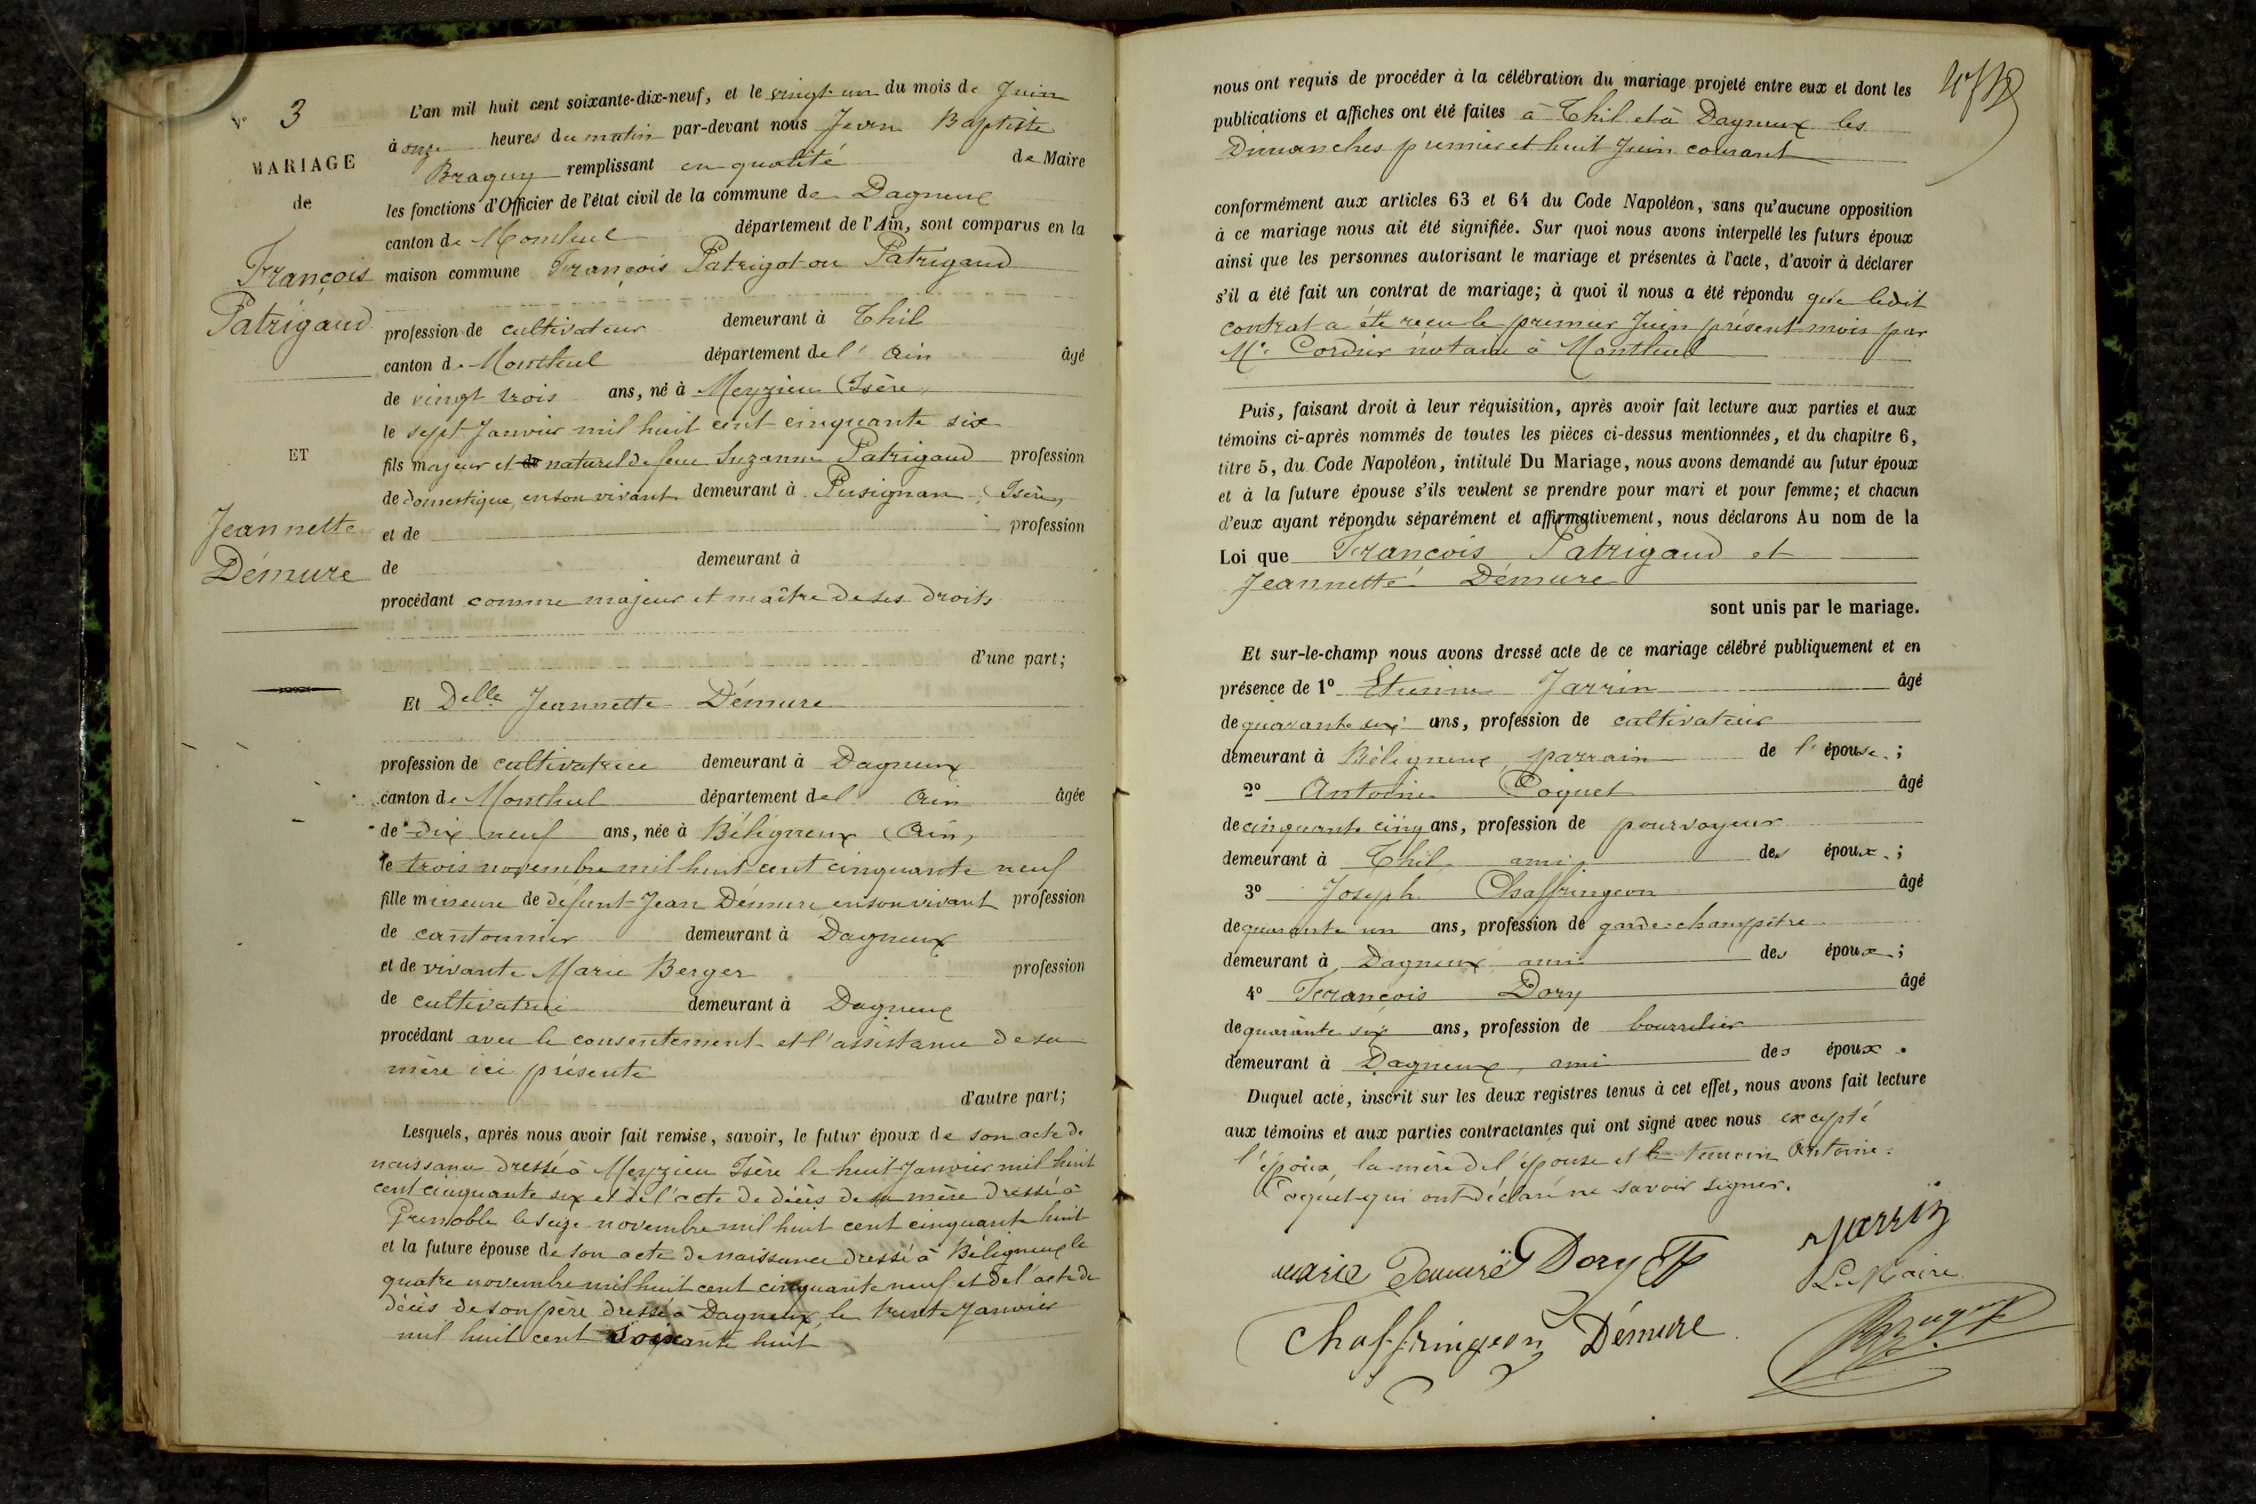 N° 3
MARIAGE
de
François
Patrigaud
ET
Jeannette
Démure
L'an mil huit cent soixante-dix-neuf, et le vingt un du mois de Juin
à onze heures du matin par-devant nous Jean Baptiste
Braguy remplissant en qualité de Maire
les fonctions d'Officier de l'état civil de la commune de Dagneux
canton de Montluel département de l'Ain, sont comparus en la
maison commune François Patrigot ou Patrigaud
profession de cultivateur demeurant à Thil
canton de Montluel département de l' Ain âgé
de vingt trois ans, né à Meyzieu (Isère)
le sept Janvier mil huit cent cinquante six
fils majeur et de naturel de feue Suzanne Patrigaud profession
de domestique, en son vivant demeurant à Pusignan (Isère)
et de profession
de demeurant à
procédant comme majeur et maître de ses droits
d'une part;
Et Delle Jeannette Démure
profession de cultivatrice demeurant à Dagneux
canton de Montluel département de l' Ain âgée
de dix neuf ans, née à Béligneux (Ain)
le trois novembre mil huit cent cinquante neuf
fille mineure de défunt Jean Démure en son vivant profession
de cantonnier demeurant à Dagneux
et de vivante Marie Berger profession
de cultivatrice demeurant à Dagneux
procédant avec le consentement et l'assistance de sa
mère ici présente
d'autre part;
Lesquels, après nous avoir fait remise, savoir, le futur époux de son acte de
naissance dressé à Meyzieu Isère le huit Janvier mil huit
cent cinquante six et de l'acte de décès de sa mère dressé à
Grenoble le seize novembre mil huit cent cinquante huit
et la future épouse de son acte de naissance dressé à Béligneux le
quatre novembre mil huit cent cinquante neuf et de l'acte de
décès de son père dressé à Dagneux, le trente Janvier
mil huit cent soixante huit
nous ont requis de procéder à la célébration du mariage projeté entre eux et dont les
publications et affiches ont été faites à Thil et à Dagneux les
Dimanches premier et huit Juin courant
conformément aux articles 63 et 64 du Code Napoléon, sans qu'aucune opposition
à ce mariage nous ait été signifiée. Sur quoi nous avons interpellé les futurs époux
ainsi que les personnes autorisant le mariage et présentes à l'acte, d'avoir à déclarer
s'il a été fait un contrat de mariage; à quoi il nous a été répondu que ledit
contrat a été reçu le premier Juin présent mois par
Me Cordier notaire à Montluel
Puis, faisant droit à leur réquisition, après avoir fait lecture aux parties et aux
témoins ci-après nommés de toutes les pièces ci-dessus mentionnées, et du chapitre 6,
titre 5, du Code Napoléon, intitulé Du Mariage, nous avons demandé au futur époux
et à la future épouse s'ils veulent se prendre pour mari et pour femme; et chacun
d'eux ayant répondu séparément et affirmativement, nous déclarons Au nom de la
Loi que François Patrigaud et
Jeannette Démure
sont unis par le mariage.
Et sur-le-champ nous avons dressé acte de ce mariage célébré publiquement et en
présence de 1° Etienne Jarrin âgé
de quarante six ans, profession de cultivateur
demeurant à Béligneux, parrain de l' épouse ;
2° Antoine Coquet âgé
de cinquante cinq ans, profession de pourvoyeur
demeurant à Thil ami des époux ;
3° Joseph Chaffringeon âgé
de quarante un ans, profession de garde-champêtre
demeurant à Dagneux ami des époux ;
4° François Dory âgé
de quarante six ans, profession de bourrelier
demeurant à Dagneux, ami des époux .
Duquel acte, inscrit sur les deux registres tenus à cet effet, nous avons fait lecture
aux témoins et aux parties contractantes qui ont signé avec nous excepté
l'époux, la mère de l'épouse et le témoin Antoine
Coquet qui ont déclaré ne savoir signer.
Marie Demure Dory F Jarrin
Le Maire
Chaffringeon Démure Braguy